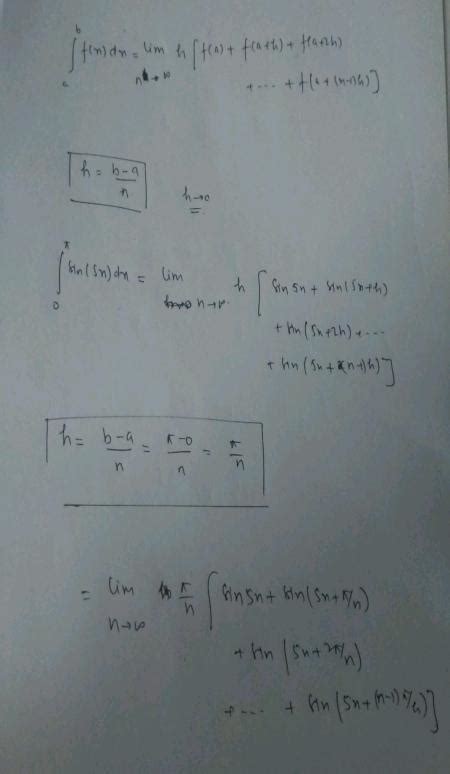 ∫ₐᵇ f(x) dx = lim n→∞ h [ f(a) + f(a+h) + f(a+2h)
+ ··· + f(a+(n-1)h) ]
h = b-a/n
h→0
∫₀^π sin(5x) dx = lim n→∞ h [ sin 5x + sin(5x+h)
+ sin(5x+2h) + ···
+ sin(5x+(n-1)h) ]
h = b-a/n = π-0/n = π/n
= lim n→∞ π/n [ sin 5x + sin(5x+π/n)
+ sin(5x+2π/n)
+ ··· + sin(5x+(n-1)π/n) ]